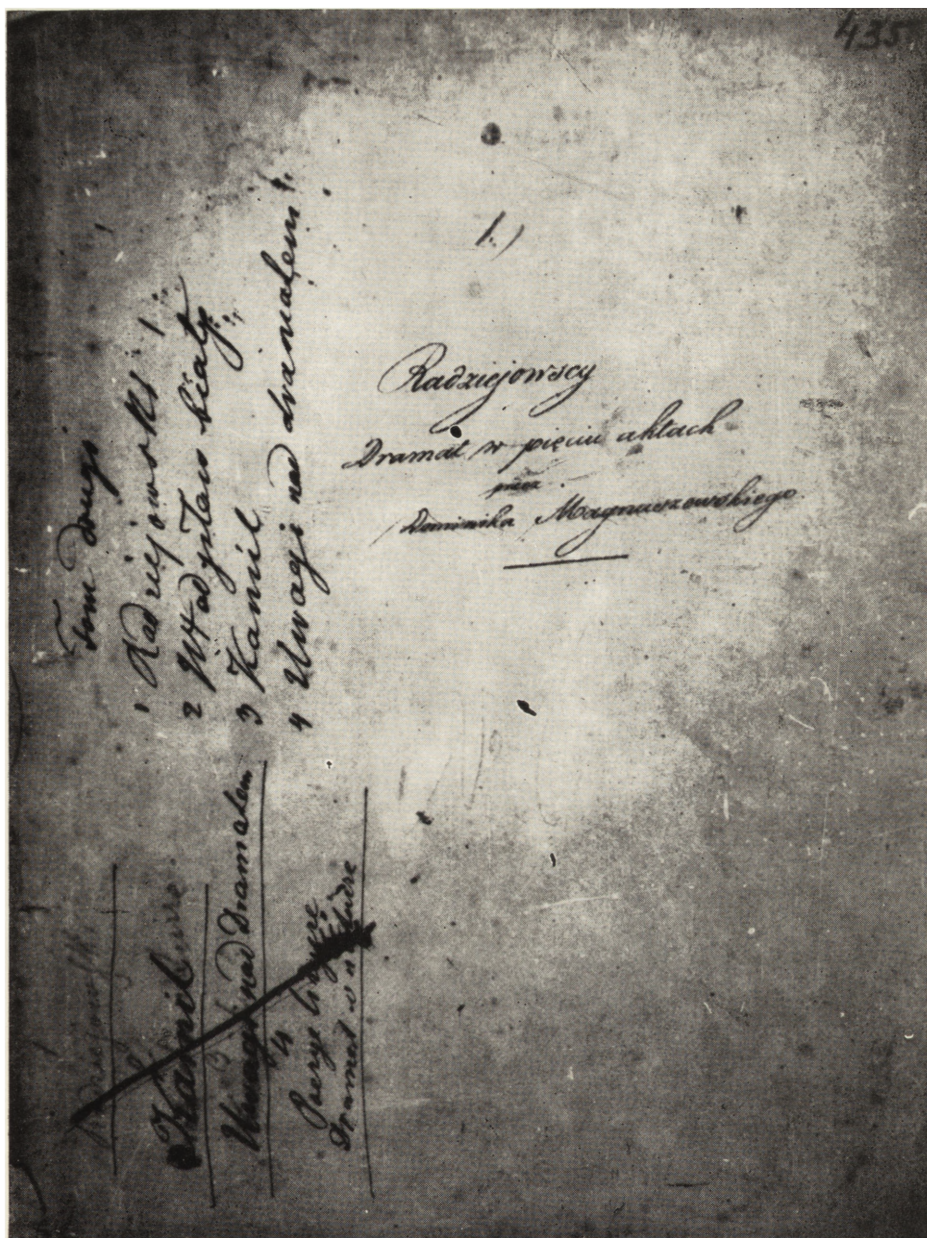 435
1.)
Radziejowscy
Dramat w pięciu aktach
przez
Dominika Magnuszewskiego
Tom drugi
1 Radziejowski
2 Władysław biały
3 Kamil
4 Uwagi nad dramatem
Kamil
Uwagi nad Dramatem
4
Poezye liryczne
Dramat w naturze